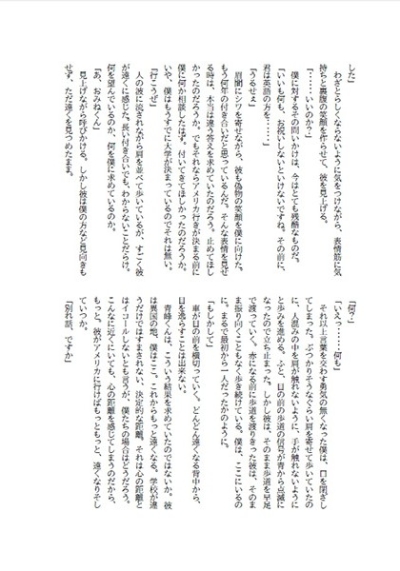 した」
　わざとらしくならないように気をつけながら、表情筋に気
持ちと裏腹の笑顔を作らせて、彼を見上げる。
「……いいのか？」
　僕に対するその問いかけは、今はとても残酷なものだ。
「いいも何も、お祝いしないといけないですね。その前に、
君は英語の方を……」
「うるせぇ」
　眉間にシワを寄せながら、彼も偽物の笑顔を僕に向けた。
もう何年の付き合いだと思っているんだ。そんな表情を見せ
る時は、本当は違う答えを求めていたのだろう。止めてほし
かったのだろうか。でもそれならアメリカ行きが決まる前に
僕に何か相談したはず。付いてきてほしかったのだろうか。
いや、僕はもうすでに大学が決まっているのでそれは無い。
「行こうぜ」
　人の波に流されながら肩を並べて歩いているが、すごく彼
が遠くに感じた。長い付き合いでも、わからないことだらけ。
何を望んでいるのか、何を僕に求めているのか。
「あ、おみねくん」
　見上げながら呼びかける。しかし彼は僕の方など見向きも
せず、ただ遠くを見つめたまま。
「何？」
「いえっ……何も」
　それ以上言葉を交わす勇気の無くなった僕は、口を閉ざし
てしまった。ぶつかりそうなくらい肩を寄せて歩いていたの
に、人混みの中を肩が触れないように、手が触れないように
と歩みを進める。ふと、目の前の歩道の信号が青から点滅に
なったので立ち止まった。しかし彼は、そのまま歩道を早足
で渡っていく。赤になる前に歩道を渡りきった彼は、そのま
ま振り向くこともなく歩き続けている。僕は、ここにいるの
に。まるで最初から一人だったかのように。
「もしかして」
　車が目の前を横切っていく。どんどん遠くなる背中から、
目を逸らすことは出来ない。
　青峰くんは、こういう結果を求めていたのではないか。彼
は異国の地、僕はここ。これからもっと遠くなる。学校が違
うだけではすまされない、決定的な距離。それは心の距離と
はイコールしないとも言うが、僕たちの場合はどうだろう。
こんなに近くにいても、心の距離を感じてしまうのだから、
もっと。彼がアメリカに行けばもっともっと、遠くなりそし
ていつか。
「別れ話、ですか」